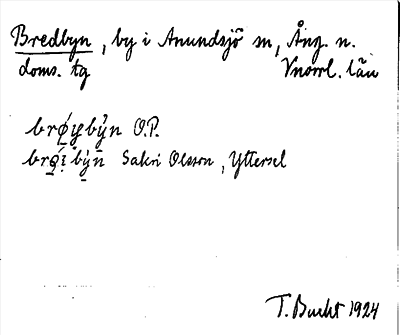 Bredbyn, by i Anundsjö sn, Ång. n.
doms. tg Vnorrl. län
brǿybỳn O.P.
brǿi̯bỳn Sakri Olsson, Yttersel
T. Bucht 1924